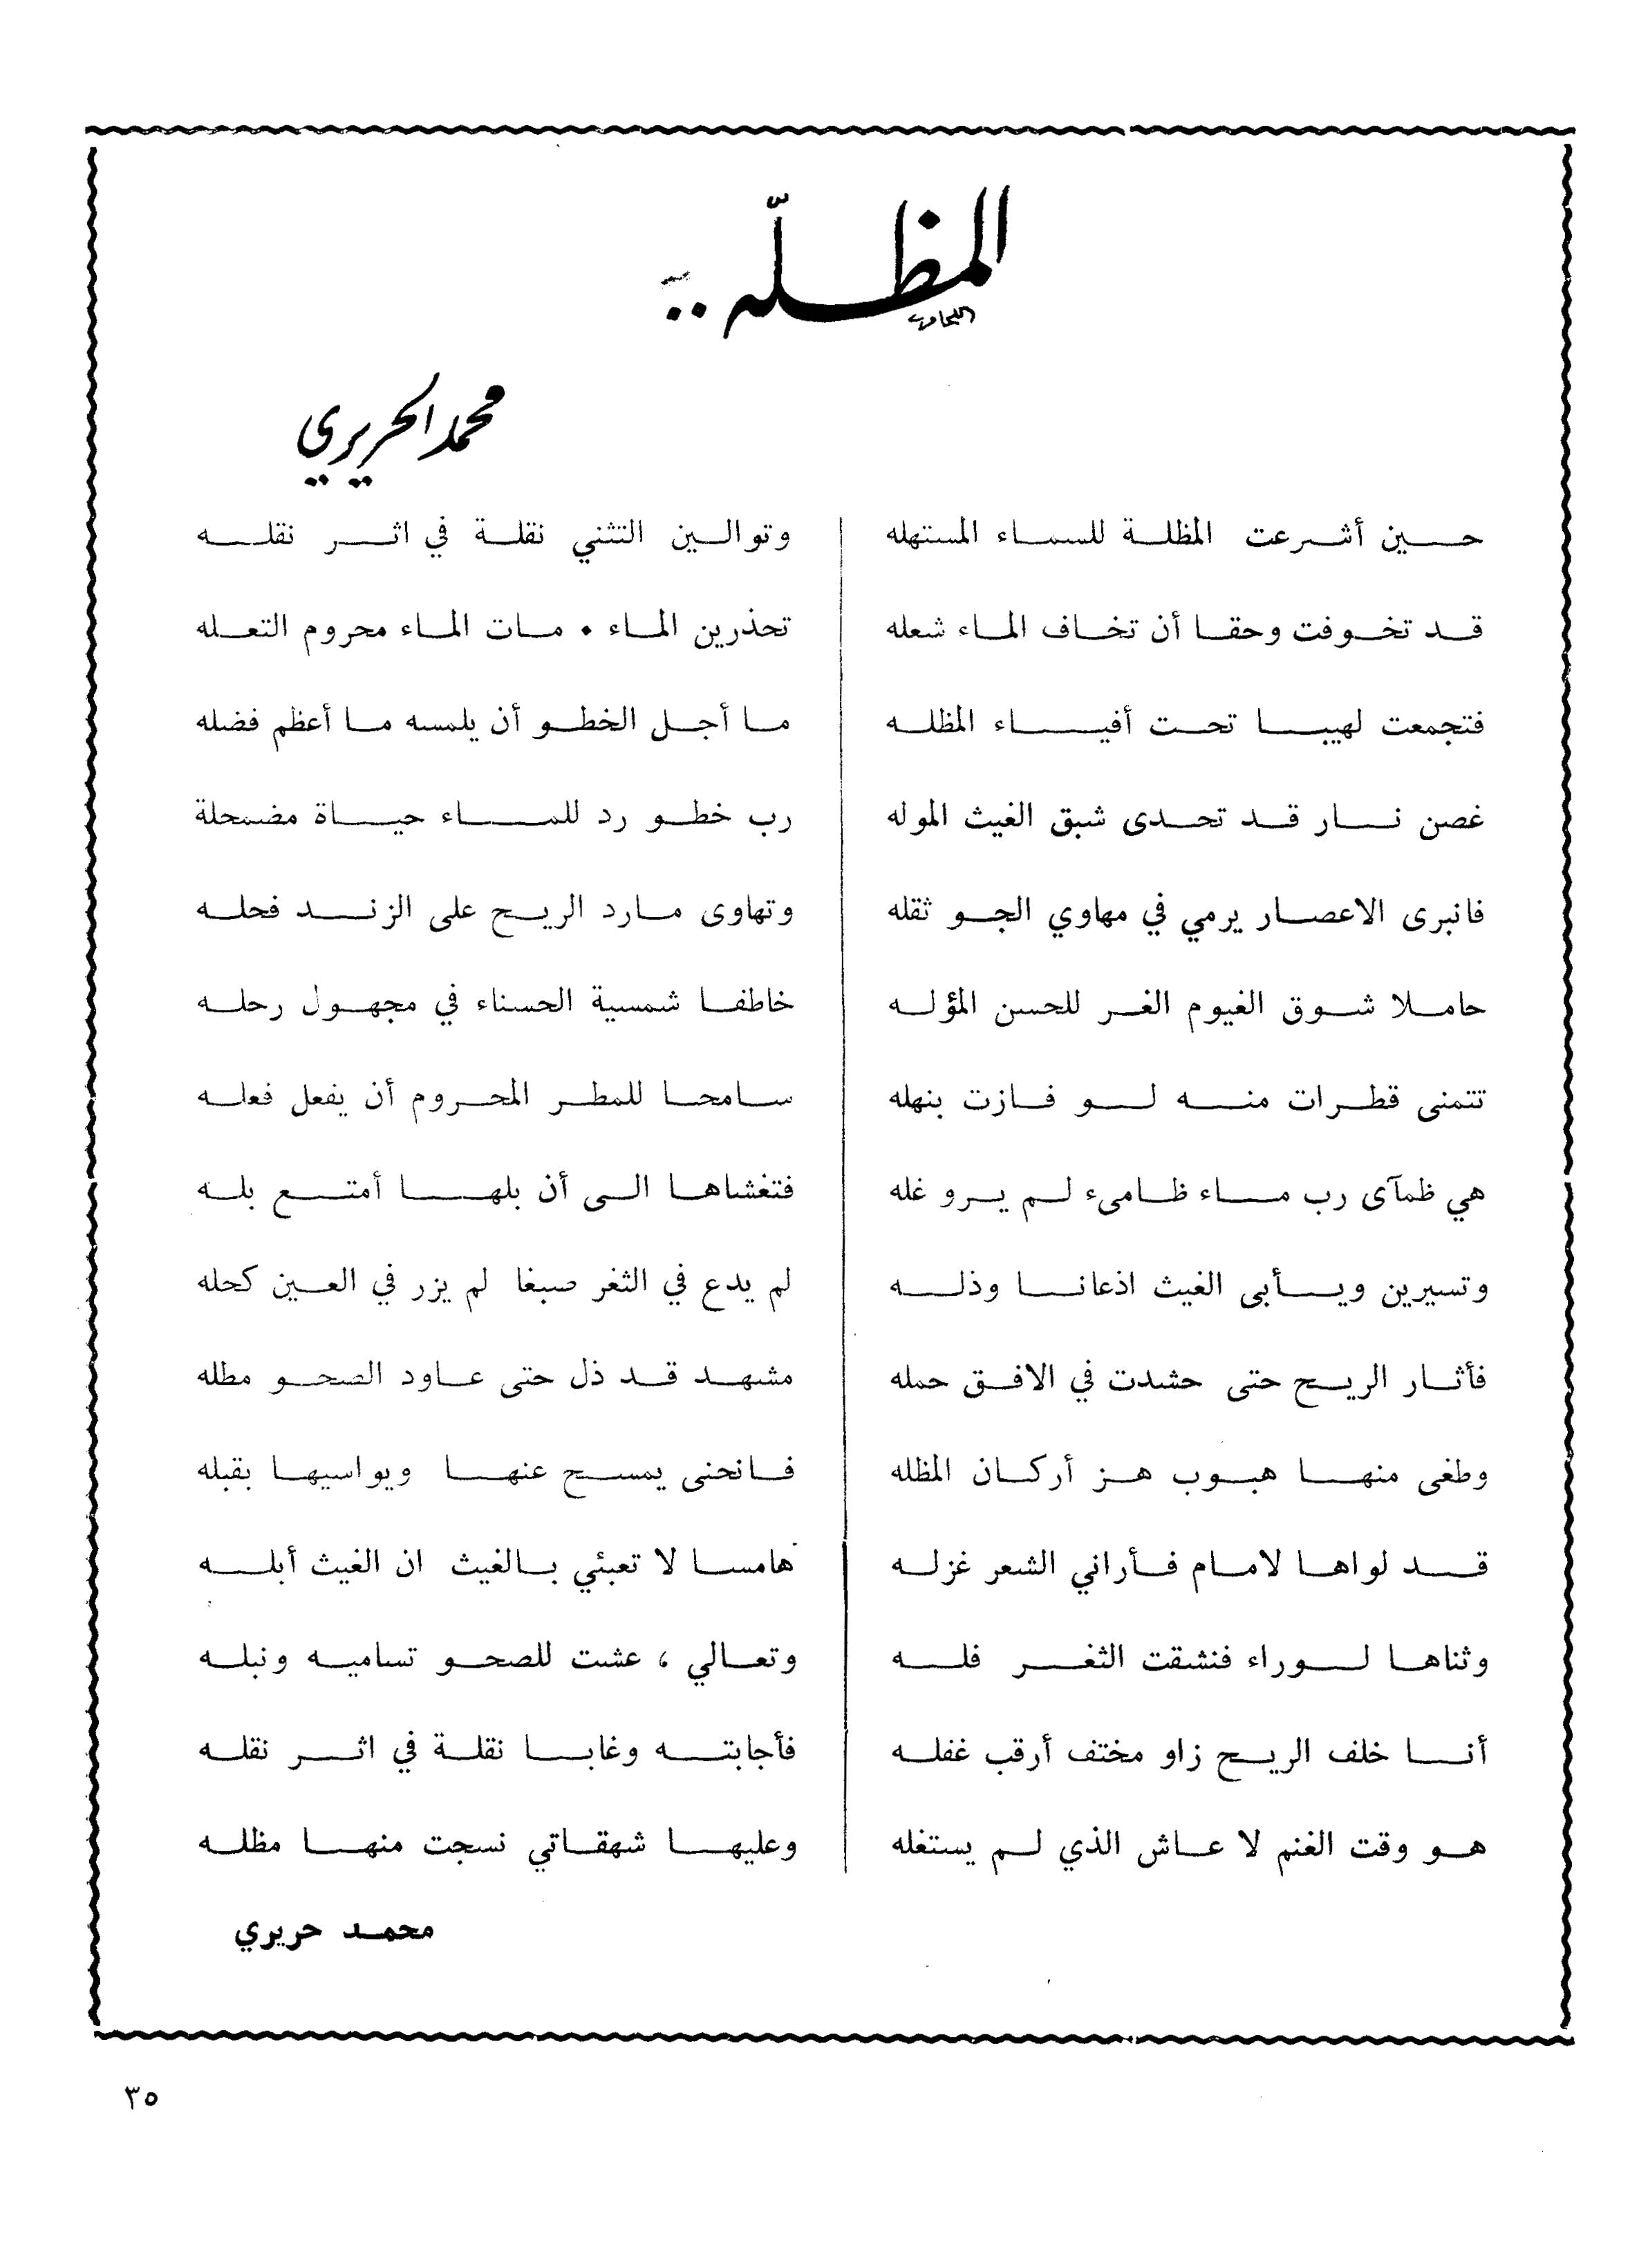 المظلّه ..
محمد الحريري
حين أشرعت المظلة للسماء المستهله
قد تخوفت وحقا أن تخاف الماء شعله
فتجمعت لهيبا تحت أفياء المظله
غصن نار قد تحدى شبق الغيث الموله
فانبرى الاعصار يرمي في مهاوي الجو ثقله
حاملا شوق الغيوم الغر للحسن المؤله
تتمنى قطرات منه لو فازت بنهله
هي ظمآى رب ماء ظامىء لم يرو غله
وتسيرين ويأبى الغيث اذعانا وذله
فأثار الريح حتى حشدت في الافق حمله
وطغى منها هبوب هز أركان المظله
قد لواها لامام فأراني الشعر غزله
وثناها لوراء فنشقت الثغر فله
أنا خلف الريح زاو مختف أرقب غفله
هو وقت الغنم لا عاش الذي لم يستغله
وتوالين التثني نقلة في اثر نقله
تحذرين الماء • مات الماء محروم التعله
ما أجل الخطو أن يلمسه ما أعظم فضله
رب خطو رد للماء حياة مضمحلة
وتهاوى مارد الريح على الزند فحله
خاطفا شمسية الحسناء في مجهول رحله
سامحا للمطر المحروم أن يفعل فعله
فتغشاها الى أن بلها أمتع بله
لم يدع في الثغر صبغا لم يزر في العين كحله
مشهد قد ذل حتى عاود الصحو مطله
فانحنى يمسح عنها ويواسيها بقبله
هامسا لا تعبئي بالغيث ان الغيث أبله
وتعالي ، عشت للصحو تساميه ونبله
فأجابته وغابا نقلة في اثر نقله
وعليها شهقاتي نسجت منها مظله
محمد حريري
٣٥